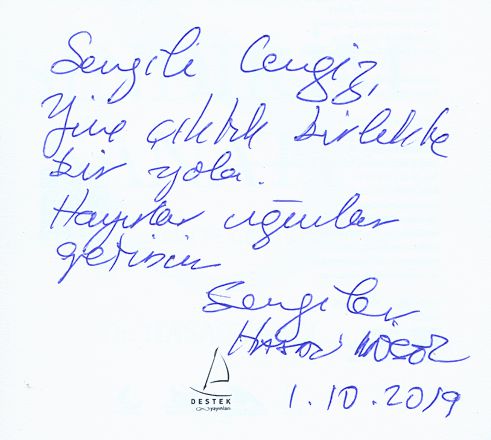 Sevgili Cengiz,
Yine çıktık birlikte
bir yola.
Hayırlar uğurlar
getirsin
Sevgiler
HASAN
1.10.2019
DESTEK
yayınları